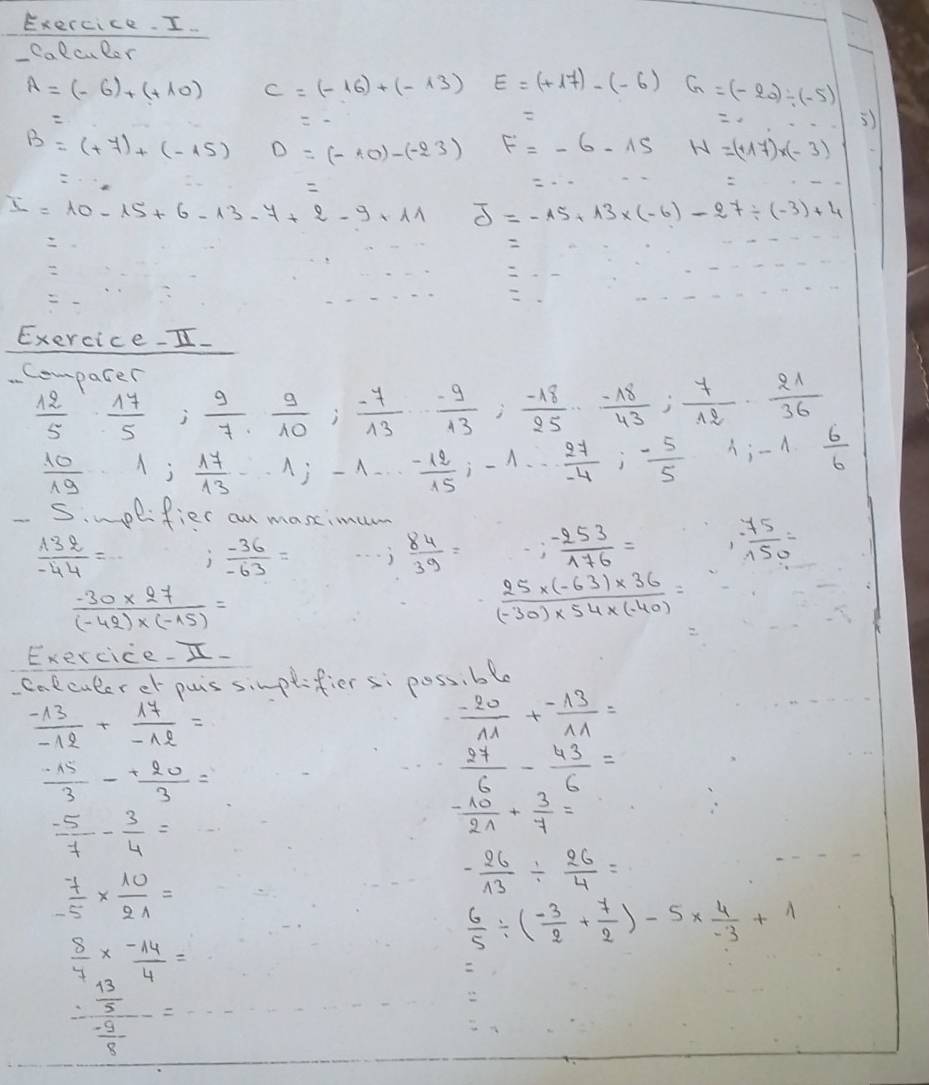 Exercice - I -
- Calculer
A = (- 6) + (+ 10) C = (- 16) + (- 13) E = (+ 17) - (- 6) G = (- 20) ÷ (-5)
= = = =
B = (+ 7) + (- 15) D = (- 10) - (-23) F = - 6 - 15 H = (+17) × (- 3)
= = = =
I = 10 - 15 + 6 - 13 - 7 + 2 - 9 + 11 J = - 15 + 13 × (- 6) - 27 ÷ (-3) + 4
= =
= =
= =
Exercice - II -
- Comparer
12/5 ... 17/5 ; 9/7 ... 9/10 ; -7/13 ... -9/13 ; -18/25 ... -18/43 ; 7/12 ... 21/36
10/19 ... 1 ; 17/13 ... 1 ; - 1 ... -12/15 ; - 1 ... 27/-4 ; -5/5 1 ; - 1 6/6
- Simplifier au maximum
132/-44 = ... ; -36/-63 = ... ; 84/39 = ... ; -253/176 = ; -75/150 =
-30 × 27/(-42) × (-15) = 25 × (-63) × 36/(-30) × 54 × (-40) =
=
Exercice - II -
- Calculer et puis simplifier si possible
-13/-12 + 17/-12 = -20/11 + -13/11 =
-15/3 - +20/3 = 27/6 - 43/6 =
-5/7 - 3/4 = -10/21 + 3/7 =
7/-5 × 10/21 = -26/13 ÷ 26/4 =
8/7 × -14/4 = 6/5 ÷ (-3/2 + 7/2) - 5 × 4/-3 + 1
=
13/5 / -9/8 = =
=